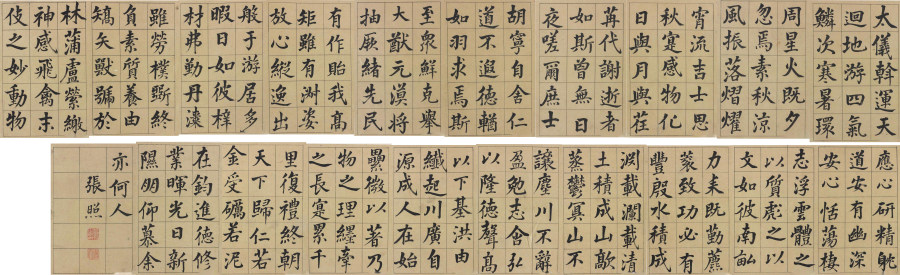 太儀斡運天
迴地游四氣
鱗次寒暑環
周星火既夕
忽焉素秋涼
風振落熠燿
宵流吉士思
秋寔感物化
日與月與荏
苒代謝逝者
如斯曾無日
夜嗟爾庶士
胡寧自舍仁
道不遐德輶
如羽求焉斯
至衆鮮克舉
大猷元漠將
抽厥緒先民
有作貽我高
矩雖有淑姿
放心縱逸出
般于游居多
暇日如彼梓
材弗勤丹漆
雖勞樸斲終
負素質養由
矯矢獸號於
林蒲盧縈繳
神感飛禽末
伎之妙動物
應心研精躭
道安有幽深
安心恬蕩棲
志浮雲體之
以質彪之以
文如彼南畝
力耒既勤藨
蓘致功必有
豐殷水積成
淵載瀾載清
土積成山歊
蒸鬱冥山不
讓塵川不辭
盈勉志含弘
以隆德聲高
以下基洪由
纖起川廣自
源成人在始
纍微以著乃
物之理纆牽
之長寔累千
里復禮終朝
天下歸仁若
金受礪若泥
在鈞進德修
業暉光日新
隰朋仰慕余
亦何人
張照